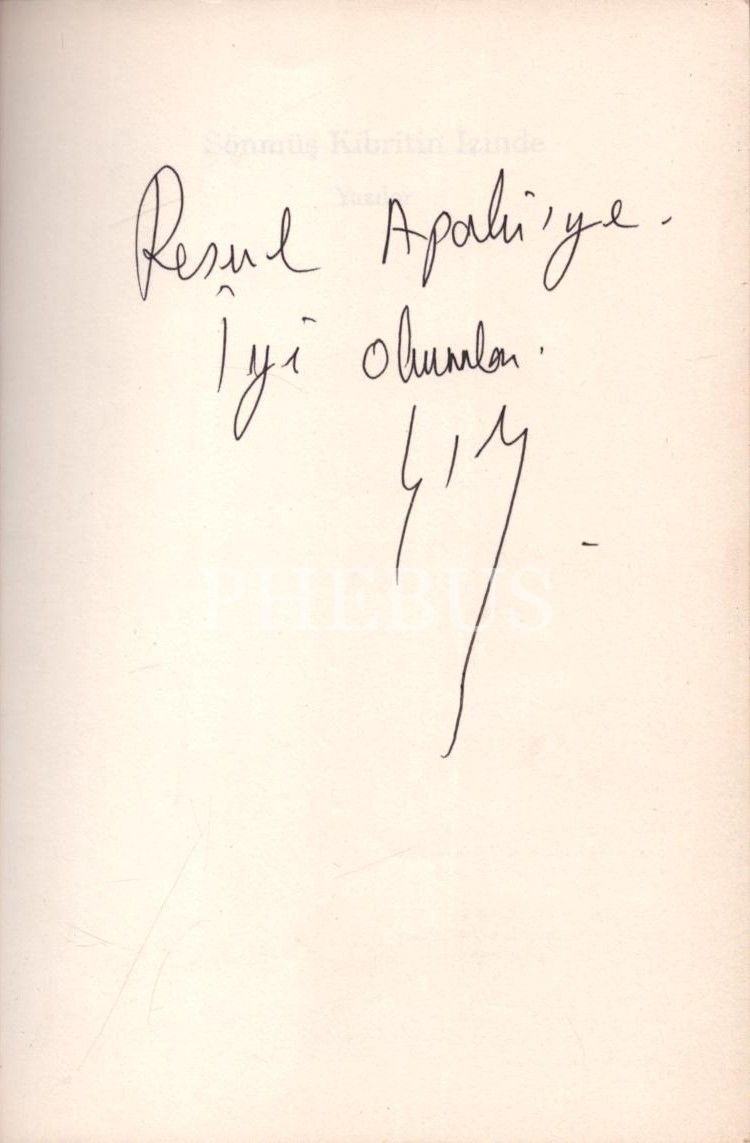 Sönmüş Kibritin İzinde
Yazılar
Resul Apaki'ye.
İyi okumalar.
PHEBUS